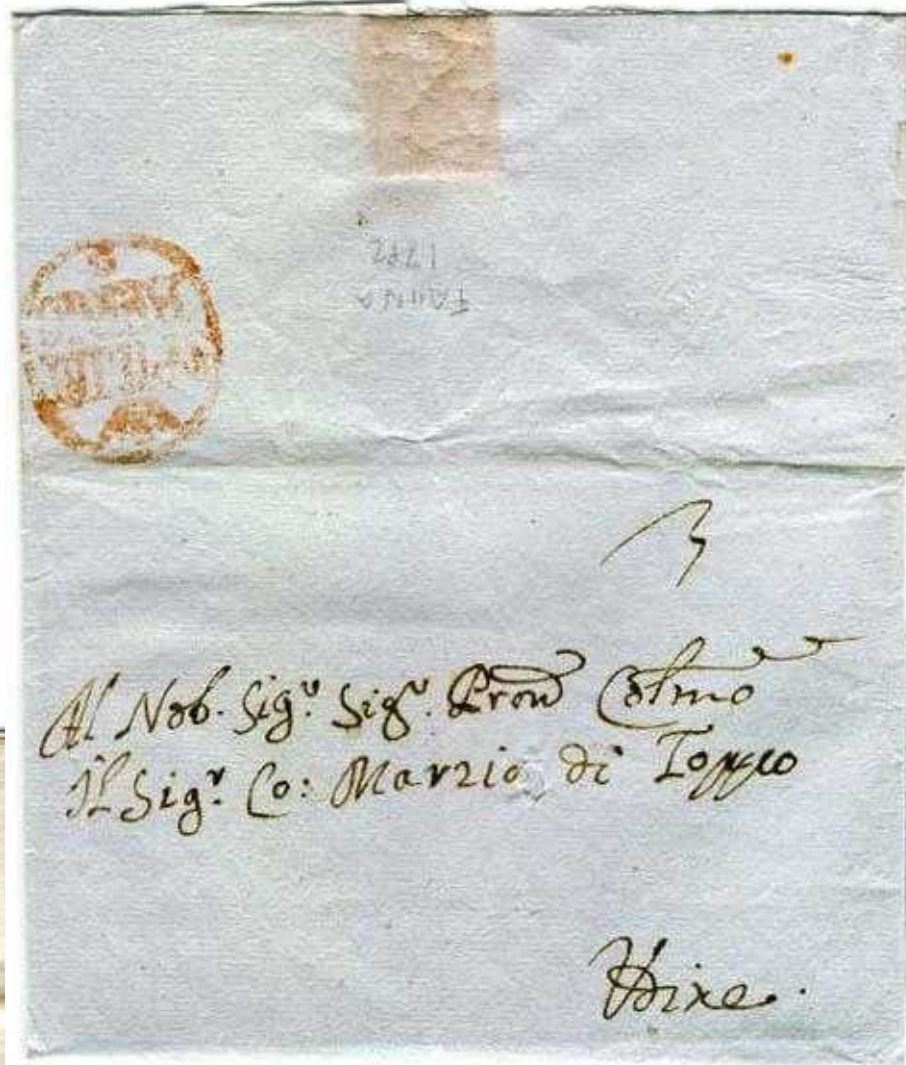 1782
3
Al Nob. Sig.r Sig.r Pron Colmo
Il Sig.r Co: Marzio di Toppo
Udine.